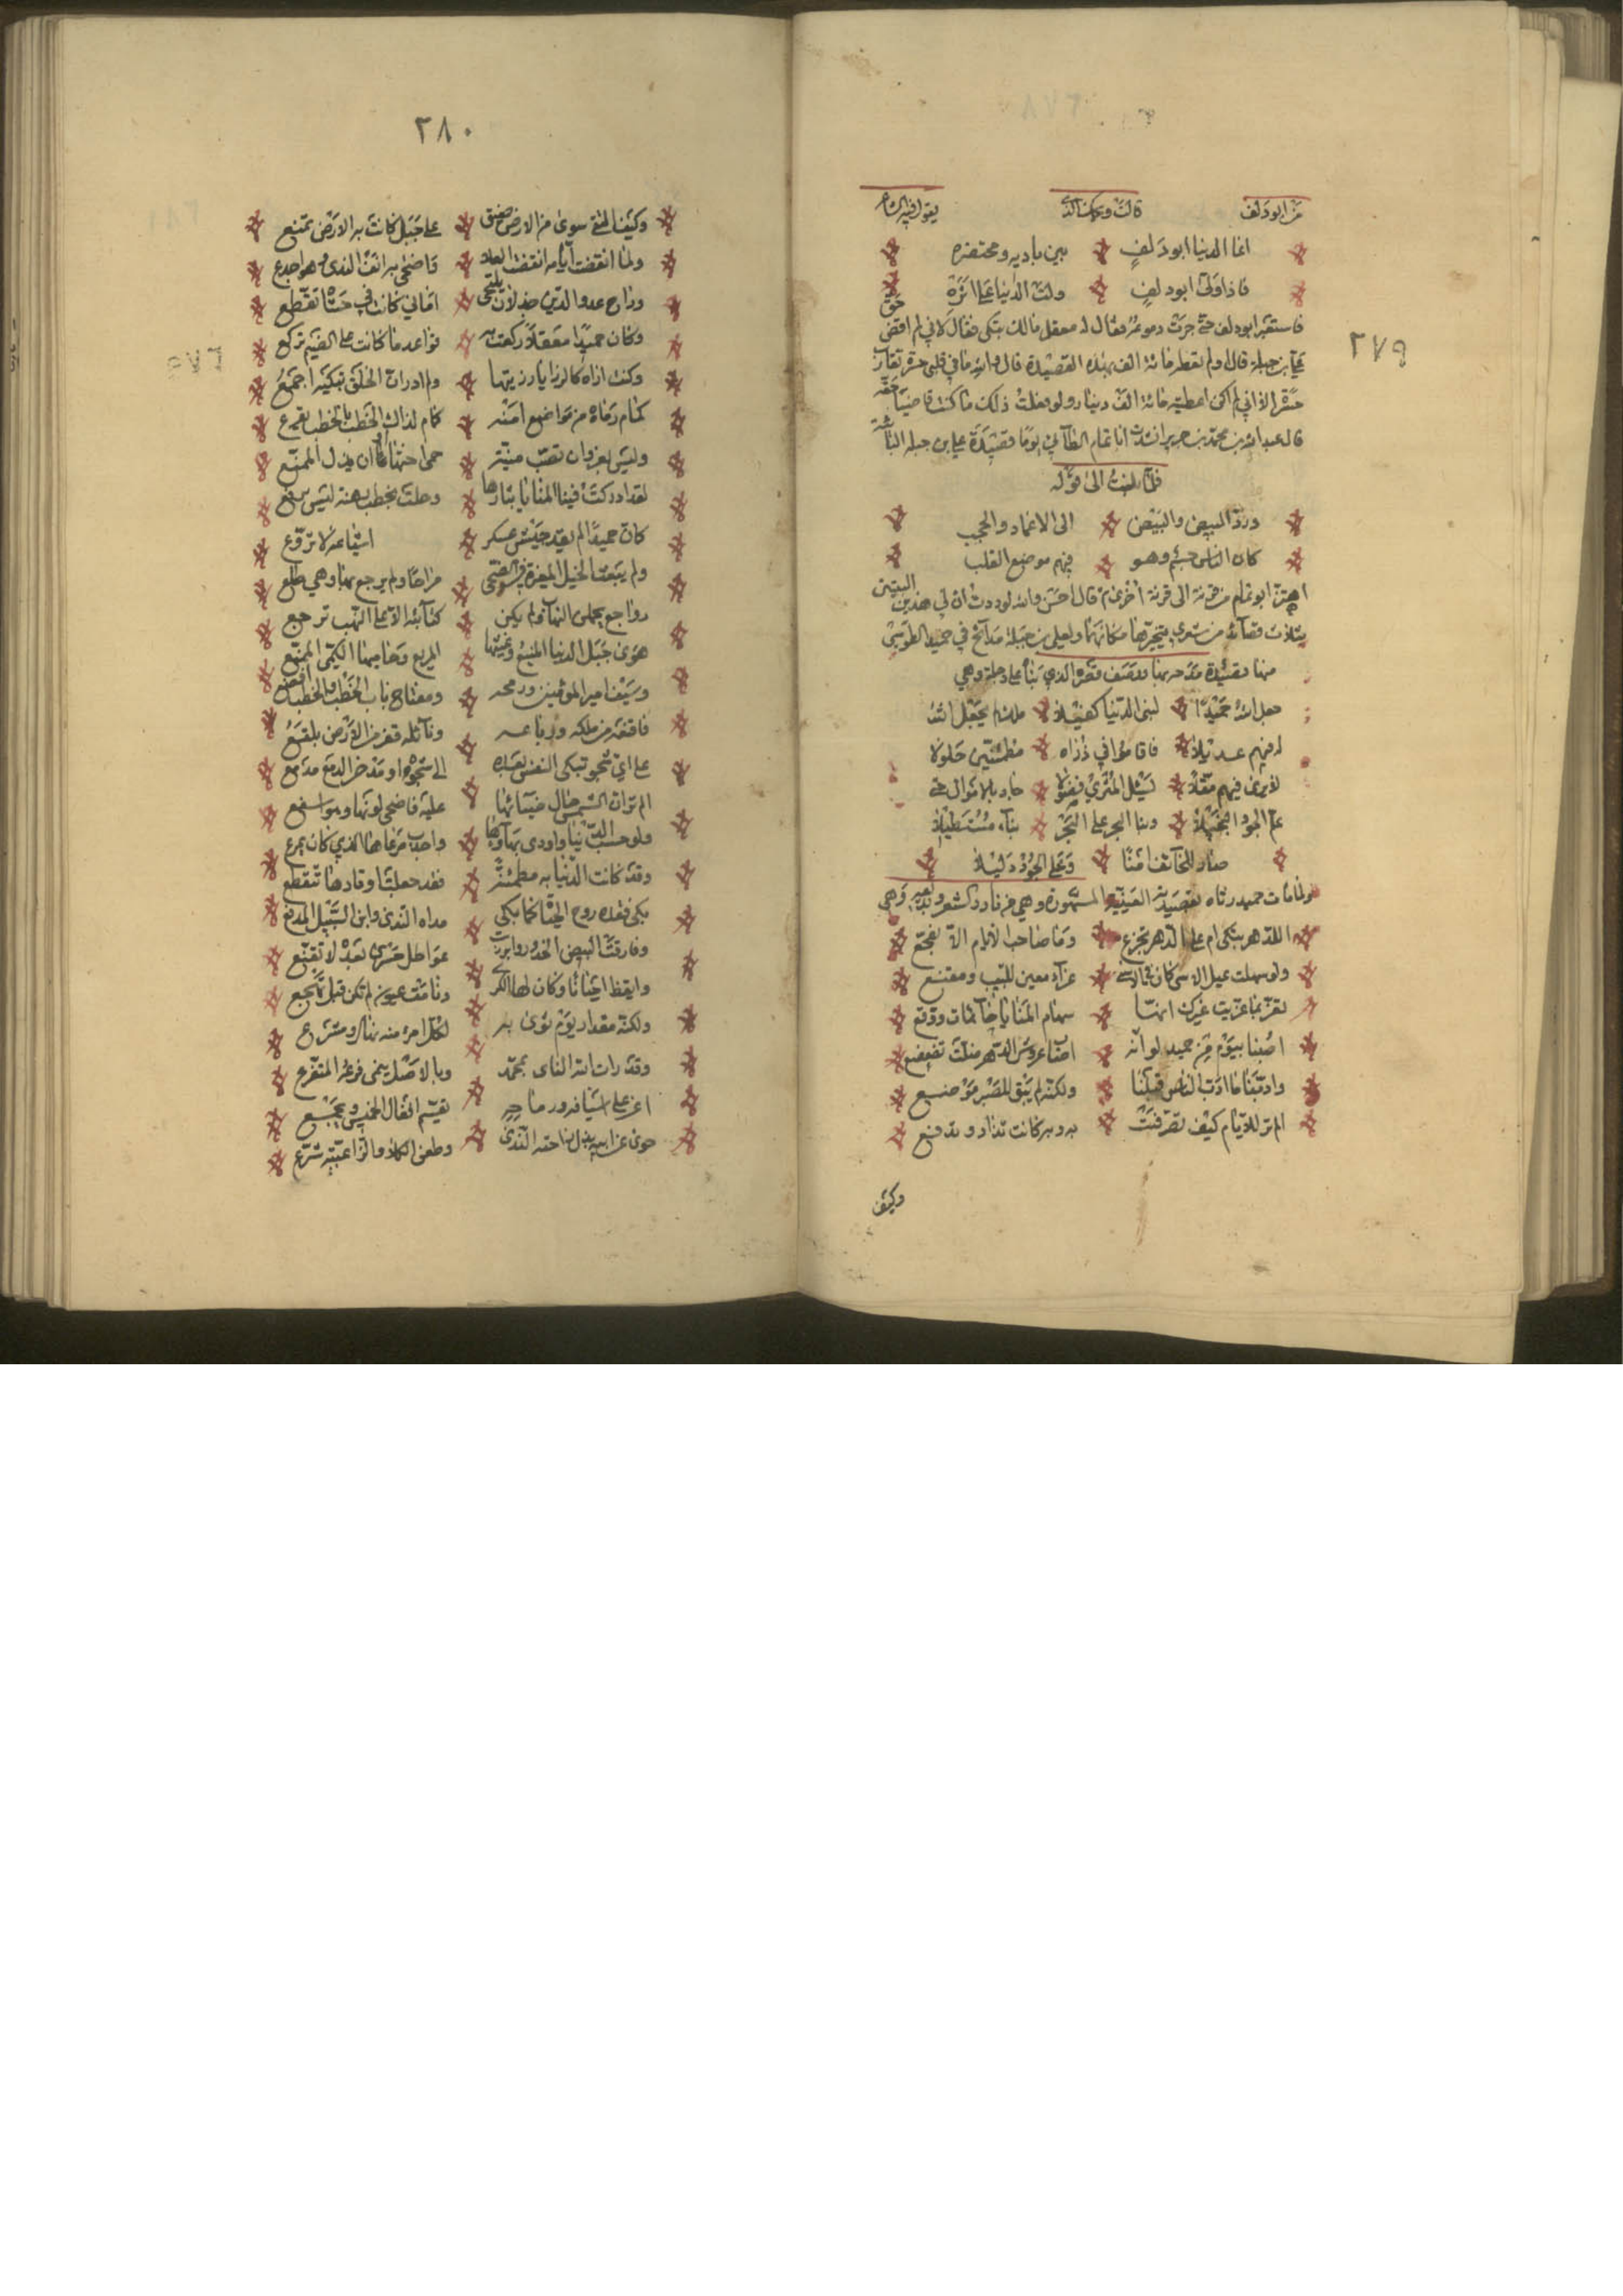 ٢٧٩
من ابو دلف قالت ويحك الذي يقول فيه الشاعر
انما الدنيا ابو دلف بين باديه ومحتضره
فاذا ولى ابو دلف ولت الدنيا على اثره
فاستعبر ابو دلف حتى جرت دموعه فقال له معقل مالك تبكي فقال لاني لم اقض حق
علي بن جبلة قال ولم تعطه مائة الف بهذه القصيدة قال والله ما في قلبي حسرة تقارب
حسرة الا اني لم اكن اعطيته مائة الف دينار ولو فعلت ذلك ما كنت قاضيا حقه
قال عبد الله بن محمد بن جرير انشدت ابا تمام الطآئي يوما قصيدة علي بن جبلة البائية
فلما بلغت الى قوله
ورد البيض والبيض الى الاغماد والحجب
كان الناس جسم وهو فيهم موضع القلب
اهتز ابو تمام من قرنه الى قرنة اخرى ثم قال احسن والله لوددت ان لي هذين البيتين
بثلاث قصآئد من شعري يتخيرها مكانهما ولعلي بن جبلة مدآئح في حميد الطوسي
منها قصيدة مدحه بها ووصف قصره الذي بناه على دجلة وهي
جعل الله حميدا لبنى الدنيا كفيلا ملك لم يجعل الله
له فيهم عديلا فاقاموا في ذراه مطمئنين حلولا
لا ترى فيهم مقلا يسئل المثري فضولا جاد بالاموال حتى
علم الجود البخيلا وبنا البحر على البحر بنآء مستطيلا
صار للخآئف امنا وعلى الجود دليلا
ولما مات حميد رثاه بقصيدته العينية المشهورة وهي من نادر الشعر وبديعه وهي
اللدهر تبكى ام على الدهر تجزع وما صاحب الايام الا مفجع
ولو سهلت عنك الاسى كان في الاسى عزآء معين للبيب ومقنع
تعز بما عزيت غيرك انها سهام المنايا حآئمات ووقع
اصبنا بيوم من حميد لو انه اصاب عروش الدهر ظلت تضعضع
وادبنا ما ادب الناس قبلنا ولكنه لم يبق للصبر موضع
الم تر للايام كيف تصرفت به وبه كانت تذاد وتدفع
وكيف
٢٨٠
وكيف التقى سوى من الارض ضيق على جبل كانت به الارض تمنع
ولما انقضت ايامه انقضت العلى واضحى به انف الندى وهو اجدع
وراح عدو الدين جذلان ينتجى اماني كانت في حشاه تقطع
وكان حميدا معقلا ركعت به قواعد ما كانت على الضيم تركع
وكنت اراه كالرزايا رزيتها ولم ادر ان الخلق تبكيه اجمع
حمام رماه من مواضع امنه حمام لذاك الخطب بالخطب يقرع
وليس بغرو ان تصيب منية حمى اختها او ان يذل الممنع
لقد ادركت فينا المنايا بثارها وحلت بخطب وهنه ليس يرقع
كان حميدا لم يقد جيش عسكر اشياعه لا تروع
ولم يبعث الخيل المغيرة بالضحى مراحا ولم يرجع بها وهي طلع
رواجع يحملن النهاب ولم يكن كتآئبه الا على النهب ترجع
هوى جبل الدنيا المنيع وغيثها المريع وحاميها الكمي المشيع
وسيف امير المؤمنين ورمحه ومفتاح باب الخطب والخطب افظع
فاقنعه من ملكه ورباعه ونآئله قفر من الارض بلقع
على اي شجو تبكى النفس بعده الى شجوه او مذخر الدمع مدمع
الم تر ان الشمس حال ضيآئها عليه فاضحى لونها وهو اسفع
واوحشت الدنيا واودى بهآؤها واجدب مرعاها الذي كان يمرع
وقد كانت الدنيا به مطمئنة فقد جعلت اوتادها تتقطع
بكى فقده روح الحياة كما بكى نداه الندى وابن السبيل المدفع
وفارقت البيض الخدور وابرزت عواطل حسرى بعده لا تقنع
وايقظ اجفانا وكان لها الكرى ونامت عيون لم تكن قبل تهجع
ولكنه مقدار يوم ثوى به لكل امرء منه نهال ومشرع
وقد راب الله الثأى بمحمد وبالاصل ينمى فرعه المتفرع
اغر على اسيافه ورماحه تقسم انفال الخميس وتجمع
حوى عن ابيه بذل راحته الندى وطعن الكلا والزاعبية شرع